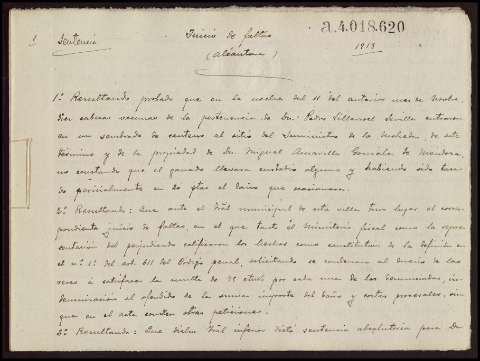 a.4.018.620
1
Sentencia
Juicio de faltas
(Alcántara)
1913
1º Resultando probado que en la noche del 11 del anterior mes de Novbre.
diez cabezas vacunas de la pertenencia de Dn. Pedro Villarroel Sevilla entraron
en un sembrado de centeno al sitio del de la de este
término y de la propiedad de Dn. Miguel Amarilla González de Mendoza,
no constando que el ganado llevara custodia alguna y habiendo sido tasa-
do pericialmente en 20 ptas el daño que ocasionara.
2º Resultando: Que ante el Tral municipal de esta villa tuvo lugar el corres-
pondiente juicio de faltas, en el que tanto el ministerio fiscal como la repre-
sentación del perjudicado calificaron los hechos como constitutivos de la definida en
el nº 1º del art. 611 del Código penal, solicitando se condenara al dueño de las
reses á satisfacer la multa de 75 ctms por cada una de las denunciadas, in-
demnización al ofendido de la suma importe del daño y costas procesales, sin
que en el acto consten otras peticiones.
3º Resultando: Que dicho Tral inferior dictó sentencia absolutoria para D